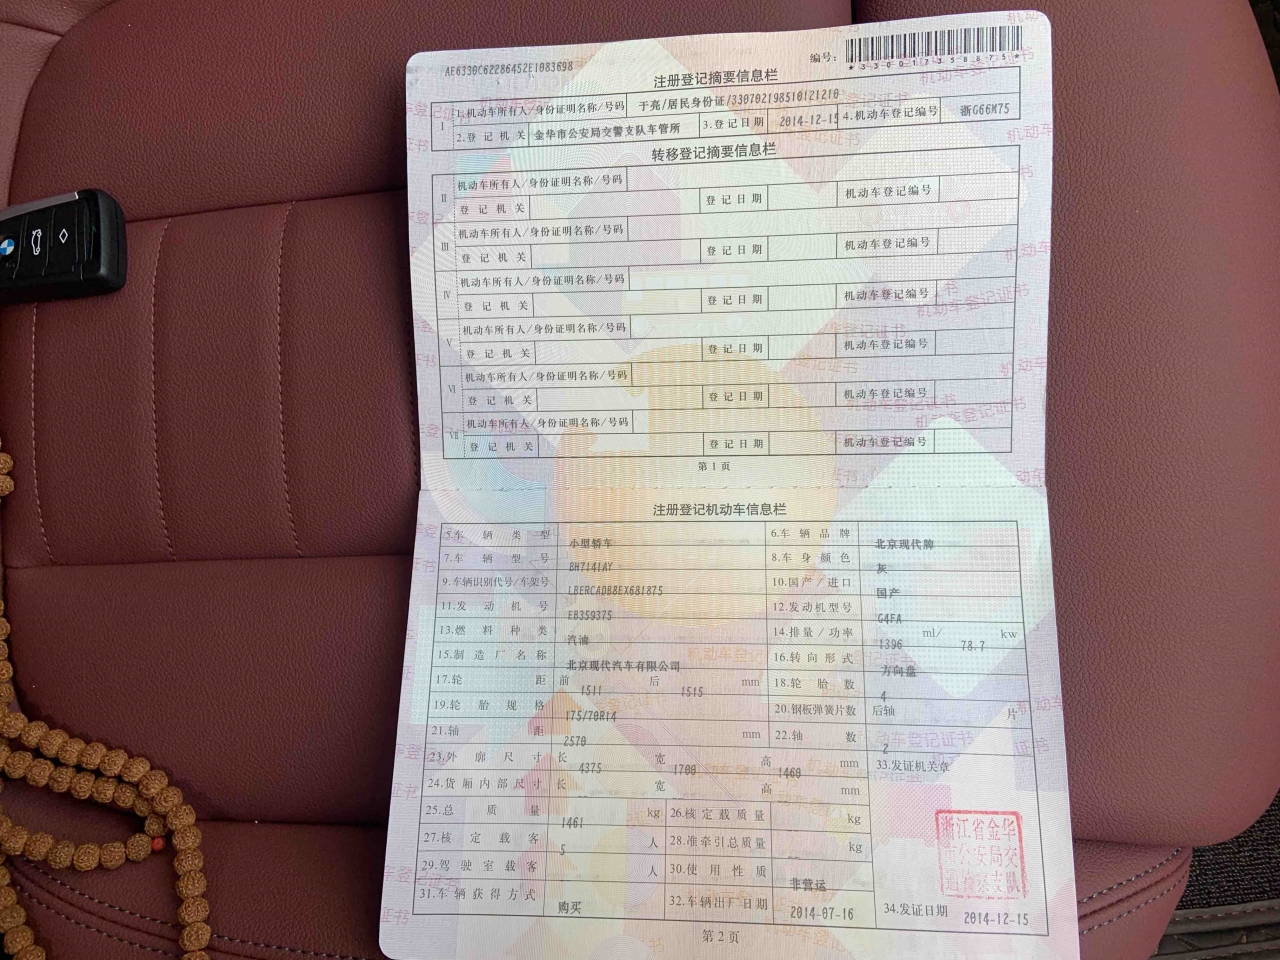 AE6330C62286452E1083698
编号:
*330012358875*
注册登记摘要信息栏
I 1.机动车所有人/身份证明名称/号码 于亮/居民身份证/330702198510121210
2.登记机关 金华市公安局交警支队车管所 3.登记日期 2014-12-15 4.机动车登记编号 浙G66M75
转移登记摘要信息栏
II 机动车所有人/身份证明名称/号码
登记机关 登记日期 机动车登记编号
III 机动车所有人/身份证明名称/号码
登记机关 登记日期 机动车登记编号
IV 机动车所有人/身份证明名称/号码
登记机关 登记日期 机动车登记编号
V 机动车所有人/身份证明名称/号码
登记机关 登记日期 机动车登记编号
VI 机动车所有人/身份证明名称/号码
登记机关 登记日期 机动车登记编号
VII 机动车所有人/身份证明名称/号码
登记机关 登记日期 机动车登记编号
第1页
注册登记机动车信息栏
5.车辆类型 小型轿车 6.车辆品牌 北京现代牌
7.车辆型号 BH7141AY 8.车身颜色 灰
9.车辆识别代号/车架号 LBERCADB8EX681875 10.国产/进口 国产
11.发动机号 EB359375 12.发动机型号 G4FA
13.燃料种类 汽油 14.排量/功率 1396 ml/ 78.7 kw
15.制造厂名称 北京现代汽车有限公司 16.转向形式 方向盘
17.轮距 前 1511 后 1515 mm 18.轮胎数 4
19.轮胎规格 175/70R14 20.钢板弹簧片数 后轴 片
21.轴距 2570 mm 22.轴数 2
23.外廓尺寸 长 4375 宽 1700 高 1460 mm 33.发证机关章
24.货厢内部尺寸 长 宽 高 mm
25.总质量 1461 kg 26.核定载质量 kg
27.核定载客 5 人 28.准牵引总质量 kg
29.驾驶室载客 人 30.使用性质 非营运
31.车辆获得方式 购买 32.车辆出厂日期 2014-07-16 34.发证日期 2014-12-15
浙江省金华
市公安局交
通警察支队
第2页